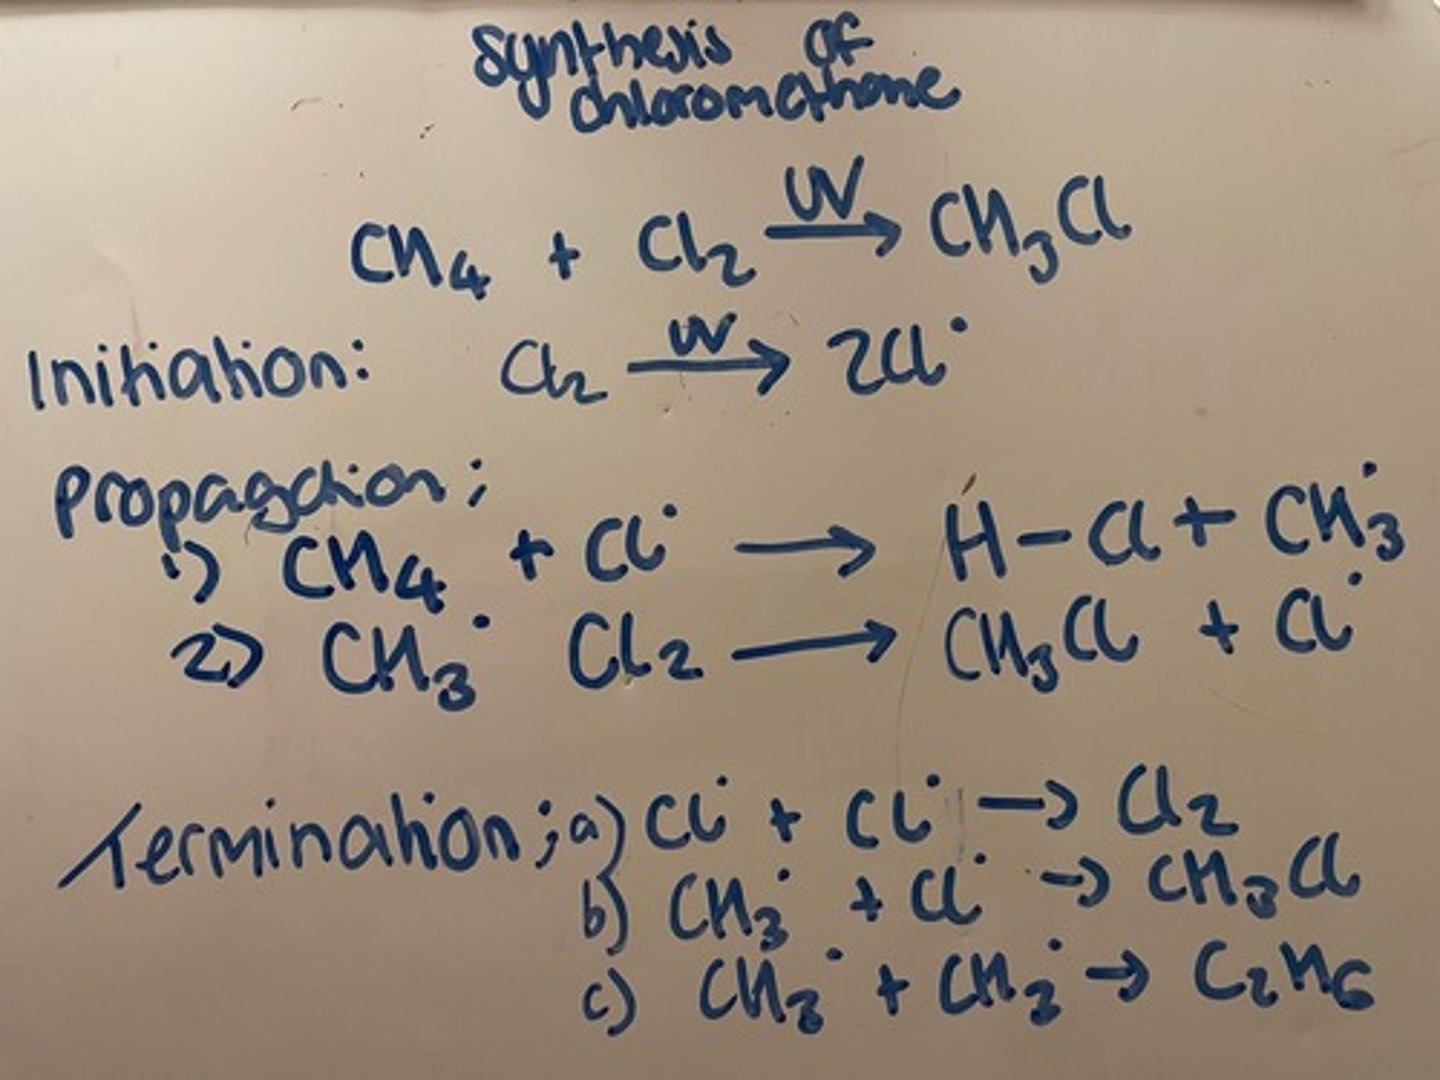 Synthesis of
chloromethane
CH₄ + Cl₂ →UV CH₃Cl
Initiation: Cl₂ →UV 2Cl•
Propagation;
1) CH₄ + Cl• → H-Cl + CH₃•
2) CH₃• Cl₂ → CH₃Cl + Cl•
Termination; a) Cl• + Cl• → Cl₂
b) CH₃• + Cl• → CH₃Cl
c) CH₃• + CH₃• → C₂H₆